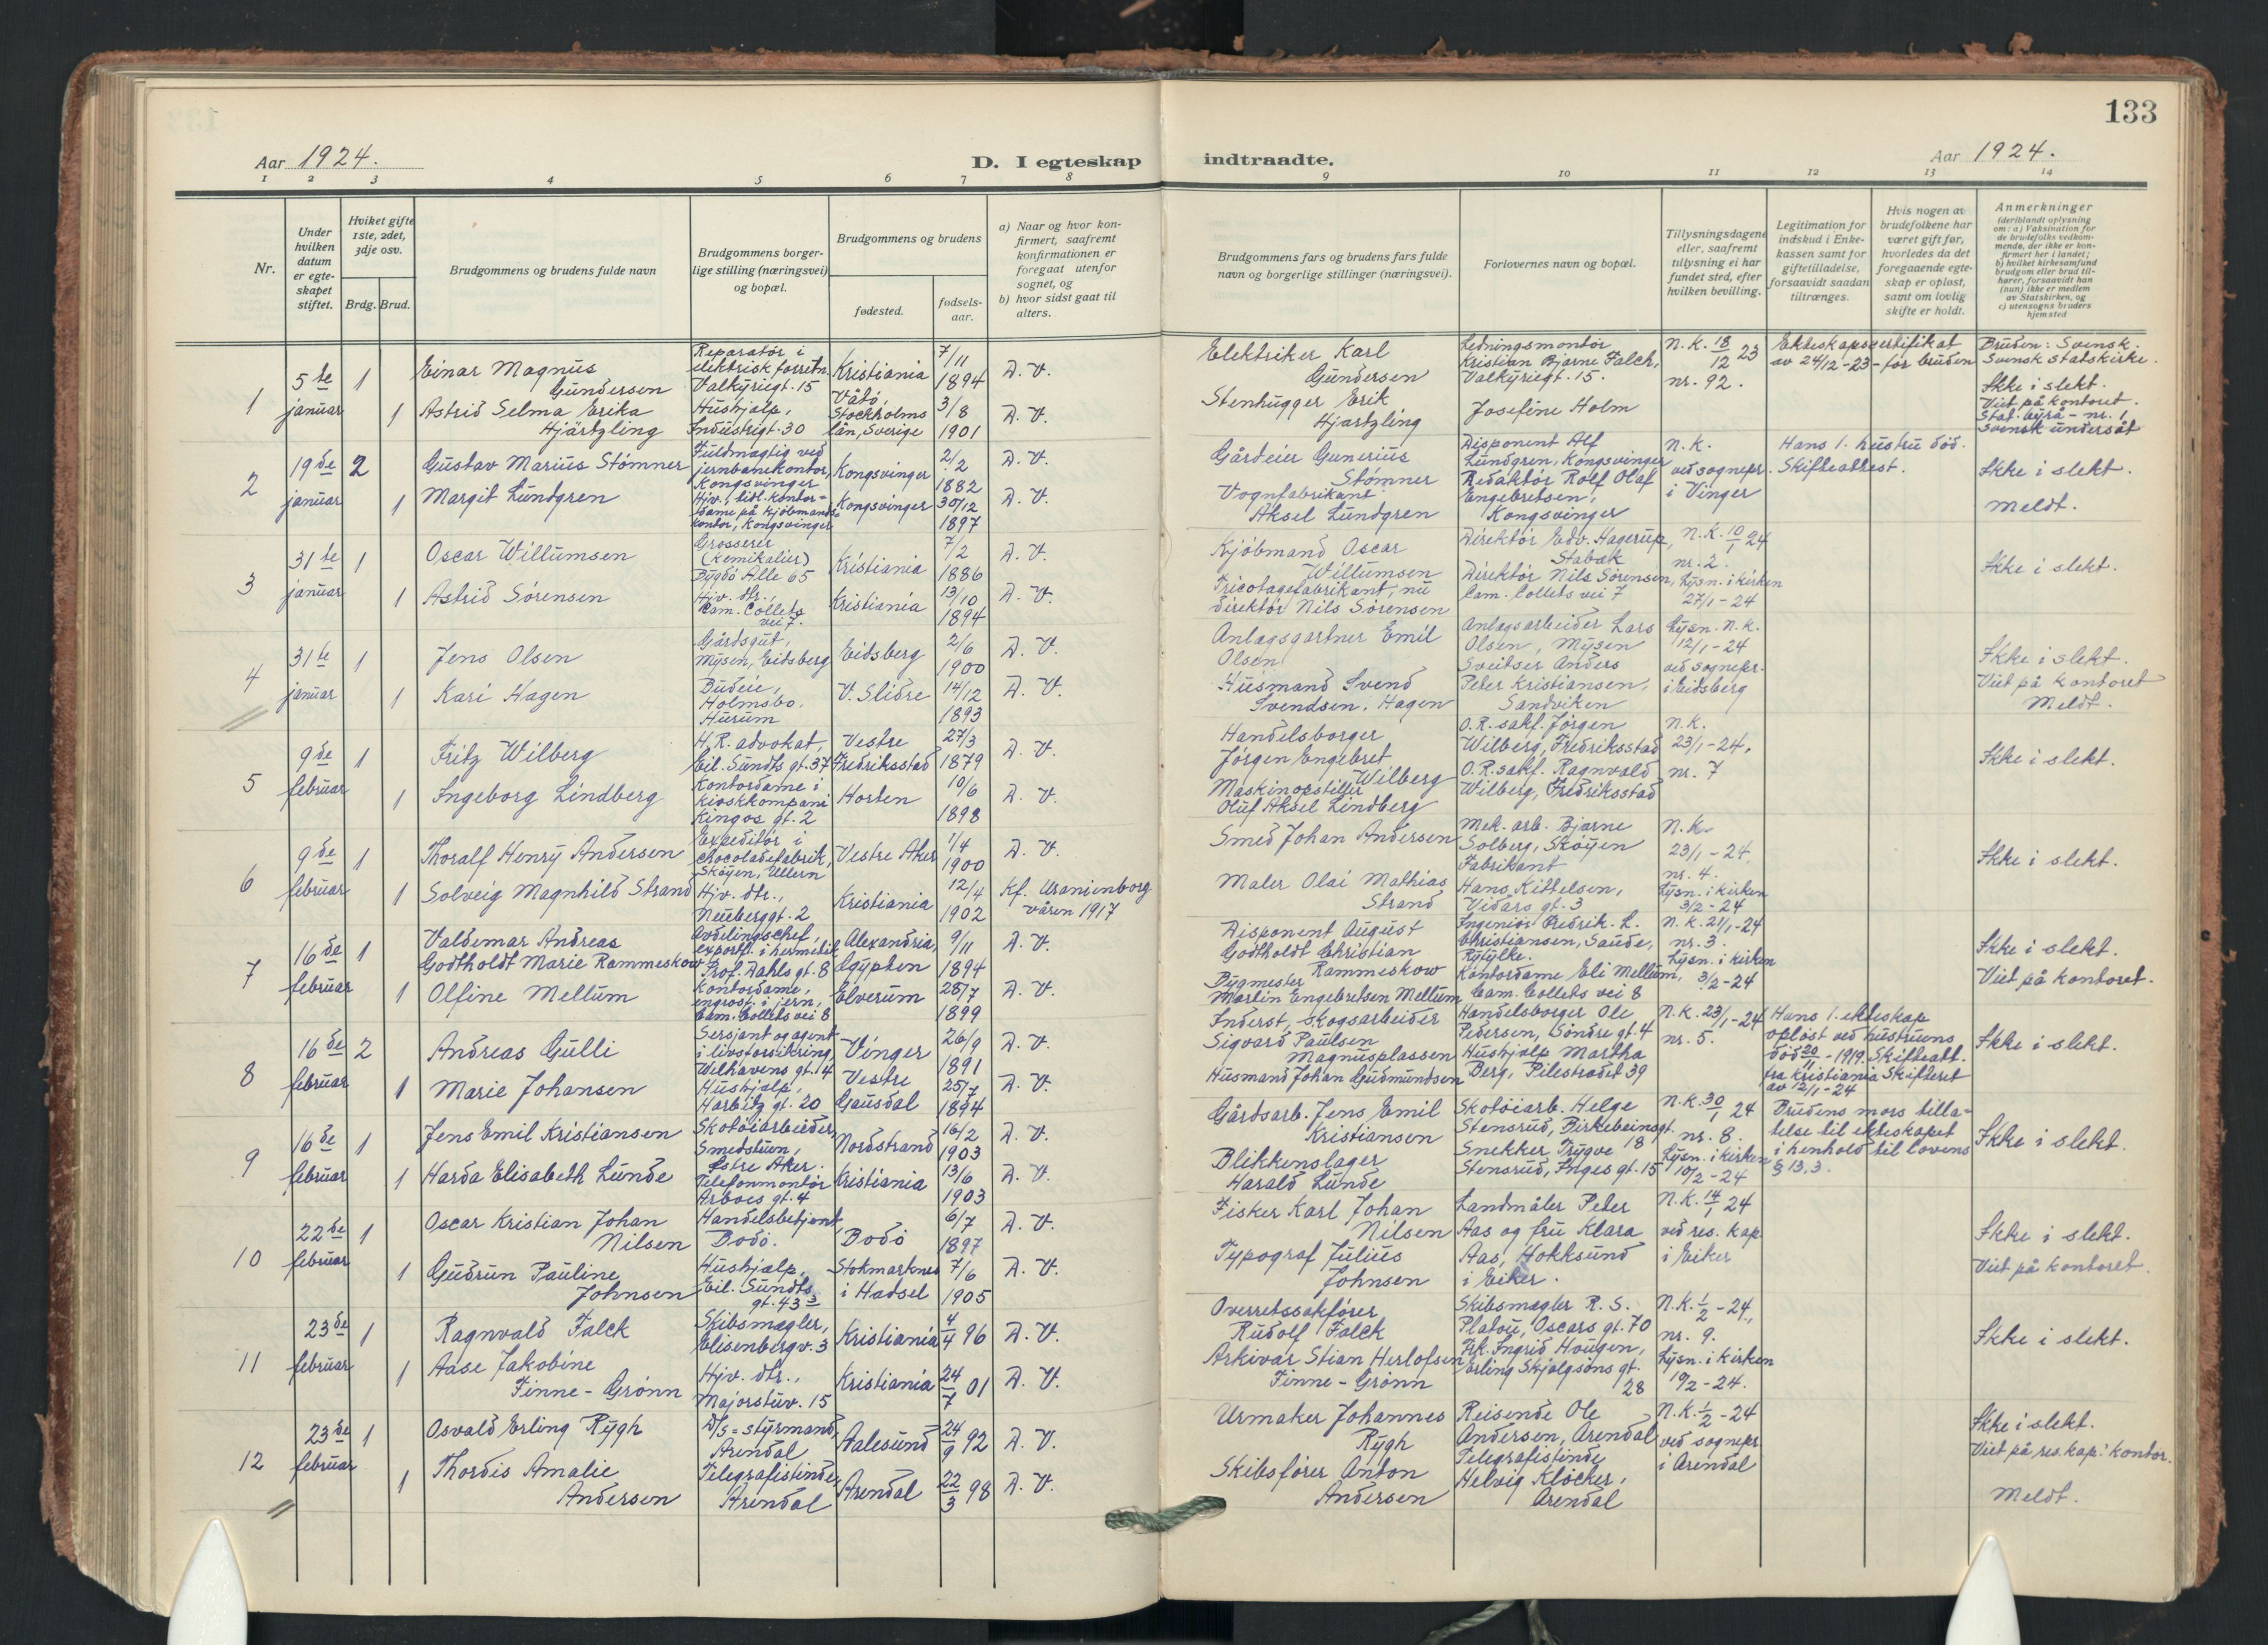 133
Aar 1924.
D. I egteskap
indtraadte.
Aar 1924.
1 2 3 4 5 6 7 8 9 10 11 12 13 14
Nr.
Under
hvilken
datum
er egte-
skapet
stiftet.
Hviket gifte
1ste, 2det,
3dje osv.
Brdg. Brud.
Brudgommens og brudens fulde navn
Brudgommens borger-
lige stilling (næringsvei)
og bopæl.
Brudgommens og brudens
fødested.
fødsels-
aar.
a) Naar og hvor kon-
firmert, saafremt
konfirmationen er
foregaat utenfor
sognet, og
b) hvor sidst gaat til
alters.
Brudgommens fars og brudens fars fulde
navn og borgerlige stillinger (næringsvei).
Forlovernes navn og bopæl.
Tillysningsdagene
eller, saafremt
tillysning ei har
fundet sted, efter
hvilken bevilling.
Legitimation for
indskud i Enke-
kassen samt for
giftetilladelse,
forsaavidt saadan
tiltrænges.
Hvis nogen av
brudefolkene har
været gift før,
hvorledes da det
foregaaende egte-
skap er opløst,
samt om lovlig
skifte er holdt.
Anmerkninger
(deriblandt oplysning
om: a) Vaksination for
de brudefolks vedkom-
mende, der ikke er kon-
firmert her i landet;
b) hvilket kirkesamfund
brudgom eller brud til-
hører, forsaavidt han
(hun) ikke er medlem
av Statskirken, og
c) utensogns bruders
hjemsted
1
5te
januar
1
Einar Magnus
Gundersen
Reparatør i
elektrisk forretn.
Valkyriegt. 15
Kristiania
7/11
1894
D. V.
1
Astrid Selma Erika
Hjärtzling
Hushjælp,
Industrigt. 30
Vätö,
Stockholms
län, Sverige
3/8
1901
D. V.
Elektriker Karl
Gundersen
Stenhugger Erik
Hjärtzling
Ledningsmontør
Kristian Bjarne Falch,
Valkyriegt. 15.
Josefine Holm
N. K. 18/12 23
nr. 92.
Ekteskapscertifikat
av 24/12-23 - for bruden
Bruden: Svensk.
Svensk statskirke.
Ikke i slekt.
Viet på kontoret.
Stat. byrå - nr. 1.
Svensk undersåt
2
19de
januar
2
Gustav Marius Stømner
Fuldmægtig ved
jernbanekontor,
Kongsvinger
Kongsvinger
2/2
1882
D. V.
1
Margit Lundgren
Hjv., tidl. kontor-
dame på kjøbmands-
kontor, Kongsvinger
Kongsvinger
30/12
1897
D. V.
Gårdeier Gunerius
Stømner
Vognfabrikant
Aksel Lundgren
Disponent Alf
Lundgren, Kongsvinger
Redaktør Rolf Olaf
Engebretsen,
Kongsvinger
N. K.
ved sognepr.
i Vinger
Hans 1. hustru død.
Skifteattest.
Ikke i slekt.
Meldt.
3
31te
januar
1
Oscar Willumsen
Grosserer
(Kemikalier)
Bygdø Alle 65
Kristiania
7/2
1886
D. V.
1
Astrid Sørensen
Hjv. dtr.,
Cam. Collets
vei 7.
Kristiania
13/10
1894
D. V.
Kjøbmand Oscar
Willumsen
Tricotagefabrikant, nu
direktør Nils Sørensen
Direktør Edv. Hagerup,
Stabæk
Direktør Nils Sørensen,
Cam. Collets vei 7
N. K. 10/1 24
nr. 2.
Lysn. i kirken
27/1-24
Ikke i slekt.
4
31te
januar
1
Jens Olsen
Gårdsgut,
Mysen, Eidsberg
Eidsberg
2/6
1900
D. V.
1
Kari Hagen
Budeie,
Holmsbo,
Hurum
V. Slidre
14/12
1893
D. V.
Anlægsgartner Emil
Olsen
Husmand Svend
Svendsen, Hagen
Anlægsarbeider Lars
Olsen, Mysen
Sveitser Anders
Peter Kristiansen,
Sandviken
Lysn. N. K.
12/1-24
ved sognepr.
i Eidsberg
Ikke i slekt.
Viet på kontoret
Meldt.
5
9de
februar
1
Fritz Wilberg
H. R. advokat,
Eil. Sundts gt. 37
Vestre
Fredriksstad
27/3
1879
D. V.
1
Ingeborg Lindberg
Kontordame i
kioskkompani
Kingos gt. 2
Horten
10/6
1898
D. V.
Handelsborger
Jørgen Engebret
Wilberg
Maskinopstiller
Oluf Aksel Lindberg
O. R. sakf. Jørgen
Wilberg, Fredriksstad
O. R. sakf. Ragnvald
Wilberg, Fredriksstad
N. K.
23/1-24.
nr. 7
Ikke i slekt.
6
9de
februar
1
Thoralf Henry Andersen
Expeditør i
chocoladefabrik,
Skøyen, Ullern
Vestre Aker
1/4
1900
D. V.
1
Solveig Magnhild Strand
Hjv. dtr.,
Neuberggt. 2
Kristiania
12/4
1902
Kf. Uranienborg
våren 1917
Smed Johan Andersen
Maler Olai Mathias
Strand
Mek. arb. Bjarne
Solberg, Skøyen
Fabrikant
Hans Kittelsen,
Vidars gt. 3
N. K.
23/1-24.
nr. 4.
Lysn. i kirken
3/2-24
Ikke i slekt.
7
16de
februar
1
Valdemar Andreas
Godtholdt Marie Rammeskow
Avdelingschef,
exportf. i hermetik
Prof. Dahls gt. 8
Alexandria,
Ægypten
9/11
1894
D. V.
1
Olfine Mellum
Kontordame,
engrosf. i jern,
Cam. Collets vei 8
Elverum
28/7
1899
D. V.
Disponent August
Godtholdt Christian
Rammeskow
Bygmester
Martin Engebretsen Mellum
Ingeniør Fredrik. L.
Christiansen, Saude,
Ryfylke.
Kontordame Eli Mellum,
Cam. Collets vei 8
N. K. 21/1-24
nr. 3.
Lysn. i kirken
3/2-24
Ikke i slekt.
Viet på kontoret.
8
16de
februar
2
Andreas Gulli
Sersjant og agent
i livsforsikring,
Welhavens gt. 14
Vinger
26/9
1891
D. V.
1
Marie Johansen
Hushjælp,
Harbitz gt. 20
Vestre
Gausdal
25/7
1894
D. V.
Inderst, skogsarbeider
Sigvard Paulsen
Magnusplassen
Husmand Johan Gudmundsen
Handelsborger Ole
Pedersen, Søndre gt. 4
Hushjælp Martha
Berg, Pilestrædet 39
N. K. 23/1-24
nr. 5.
Hans 1. ekteskap
opløst ved hustruens
død 20/11-1919. Skifteatt.
fra Kristiania Skifteret
av 12/1-24
Ikke i slekt.
9
16de
februar
1
Jens Emil Kristiansen
Skotøiarbeider,
Smedstuen,
Østre Aker.
Nordstrand
16/2
1903
D. V.
1
Harda Elisabeth Lunde
Telefonmontør
Arboes gt. 4
Kristiania
13/6
1903
D. V.
Gårdsarb. Jens Emil
Kristiansen
Blikkenslager
Harald Lunde
Skotøiarb. Helge
Stensrud, Birkebeinsgt.
18
Snekker Trygve
Stensrud, Inges gt. 15
N. K. 30/1 24
nr. 8.
Lysn. i kirken
10/2-24
Brudens mors tilla-
telse til ekteskapet
i henhold til lovens
§ 13, 3.
Ikke i slekt.
10
22de
februar
1
Oscar Kristian Johan
Nilsen
Handelsbetjent,
Bodø.
Bodø
6/7
1897
D. V.
1
Gudrun Pauline
Johnsen
Hushjælp,
Eil. Sundts
gt. 43
Stokmarknes
i Hadsel
7/6
1905
D. V.
Fisker Karl Johan
Nilsen
Typograf Julius
Johnsen
Landmåler Peter
Aas og fru Klara
Aas, Hokksund
i Eiker.
N. K. 14/1 24
ved res. kap.
i Eiker
Ikke i slekt.
Viet på kontoret.
11
23de
februar
1
Ragnvald Falck
Skibsmægler,
Elisenbergv. 3
Kristiania
4/4 96
D. V.
1
Aase Jakobine
Finne-Grønn
Hjv. dtr.,
Majorstuv. 15
Kristiania
24/7 01
D. V.
Overretssakfører
Rudolf Falck
Arkivar Stian Herlofsen
Finne-Grønn
Skibsmægler R. S.
Platou, Oscars gt. 70
Frk. Ingrid Hougen,
Erling Skjalgsøns gt.
28
N. K. 1/2-24,
nr. 9.
Lysn. i kirken
10/2-24.
Ikke i slekt.
12
23de
februar
1
Osvald Erling Rygh
D/S=styrmand,
Arendal
Aalesund
24/9 92
D. V.
1
Thordis Amalie
Andersen
Telegrafistinde,
Arendal
Arendal
22/3 98
D. V.
Urmaker Johannes
Rygh
Skibsfører Anton
Andersen
Reisende Ole
Andersen, Arendal
Telegrafistinde
Helvig Kløcker,
Arendal
N. K. 1/2-24
ved sognepr.
i Arendal
Ikke i slekt.
Viet på res. kap.' kontor.
Meldt.